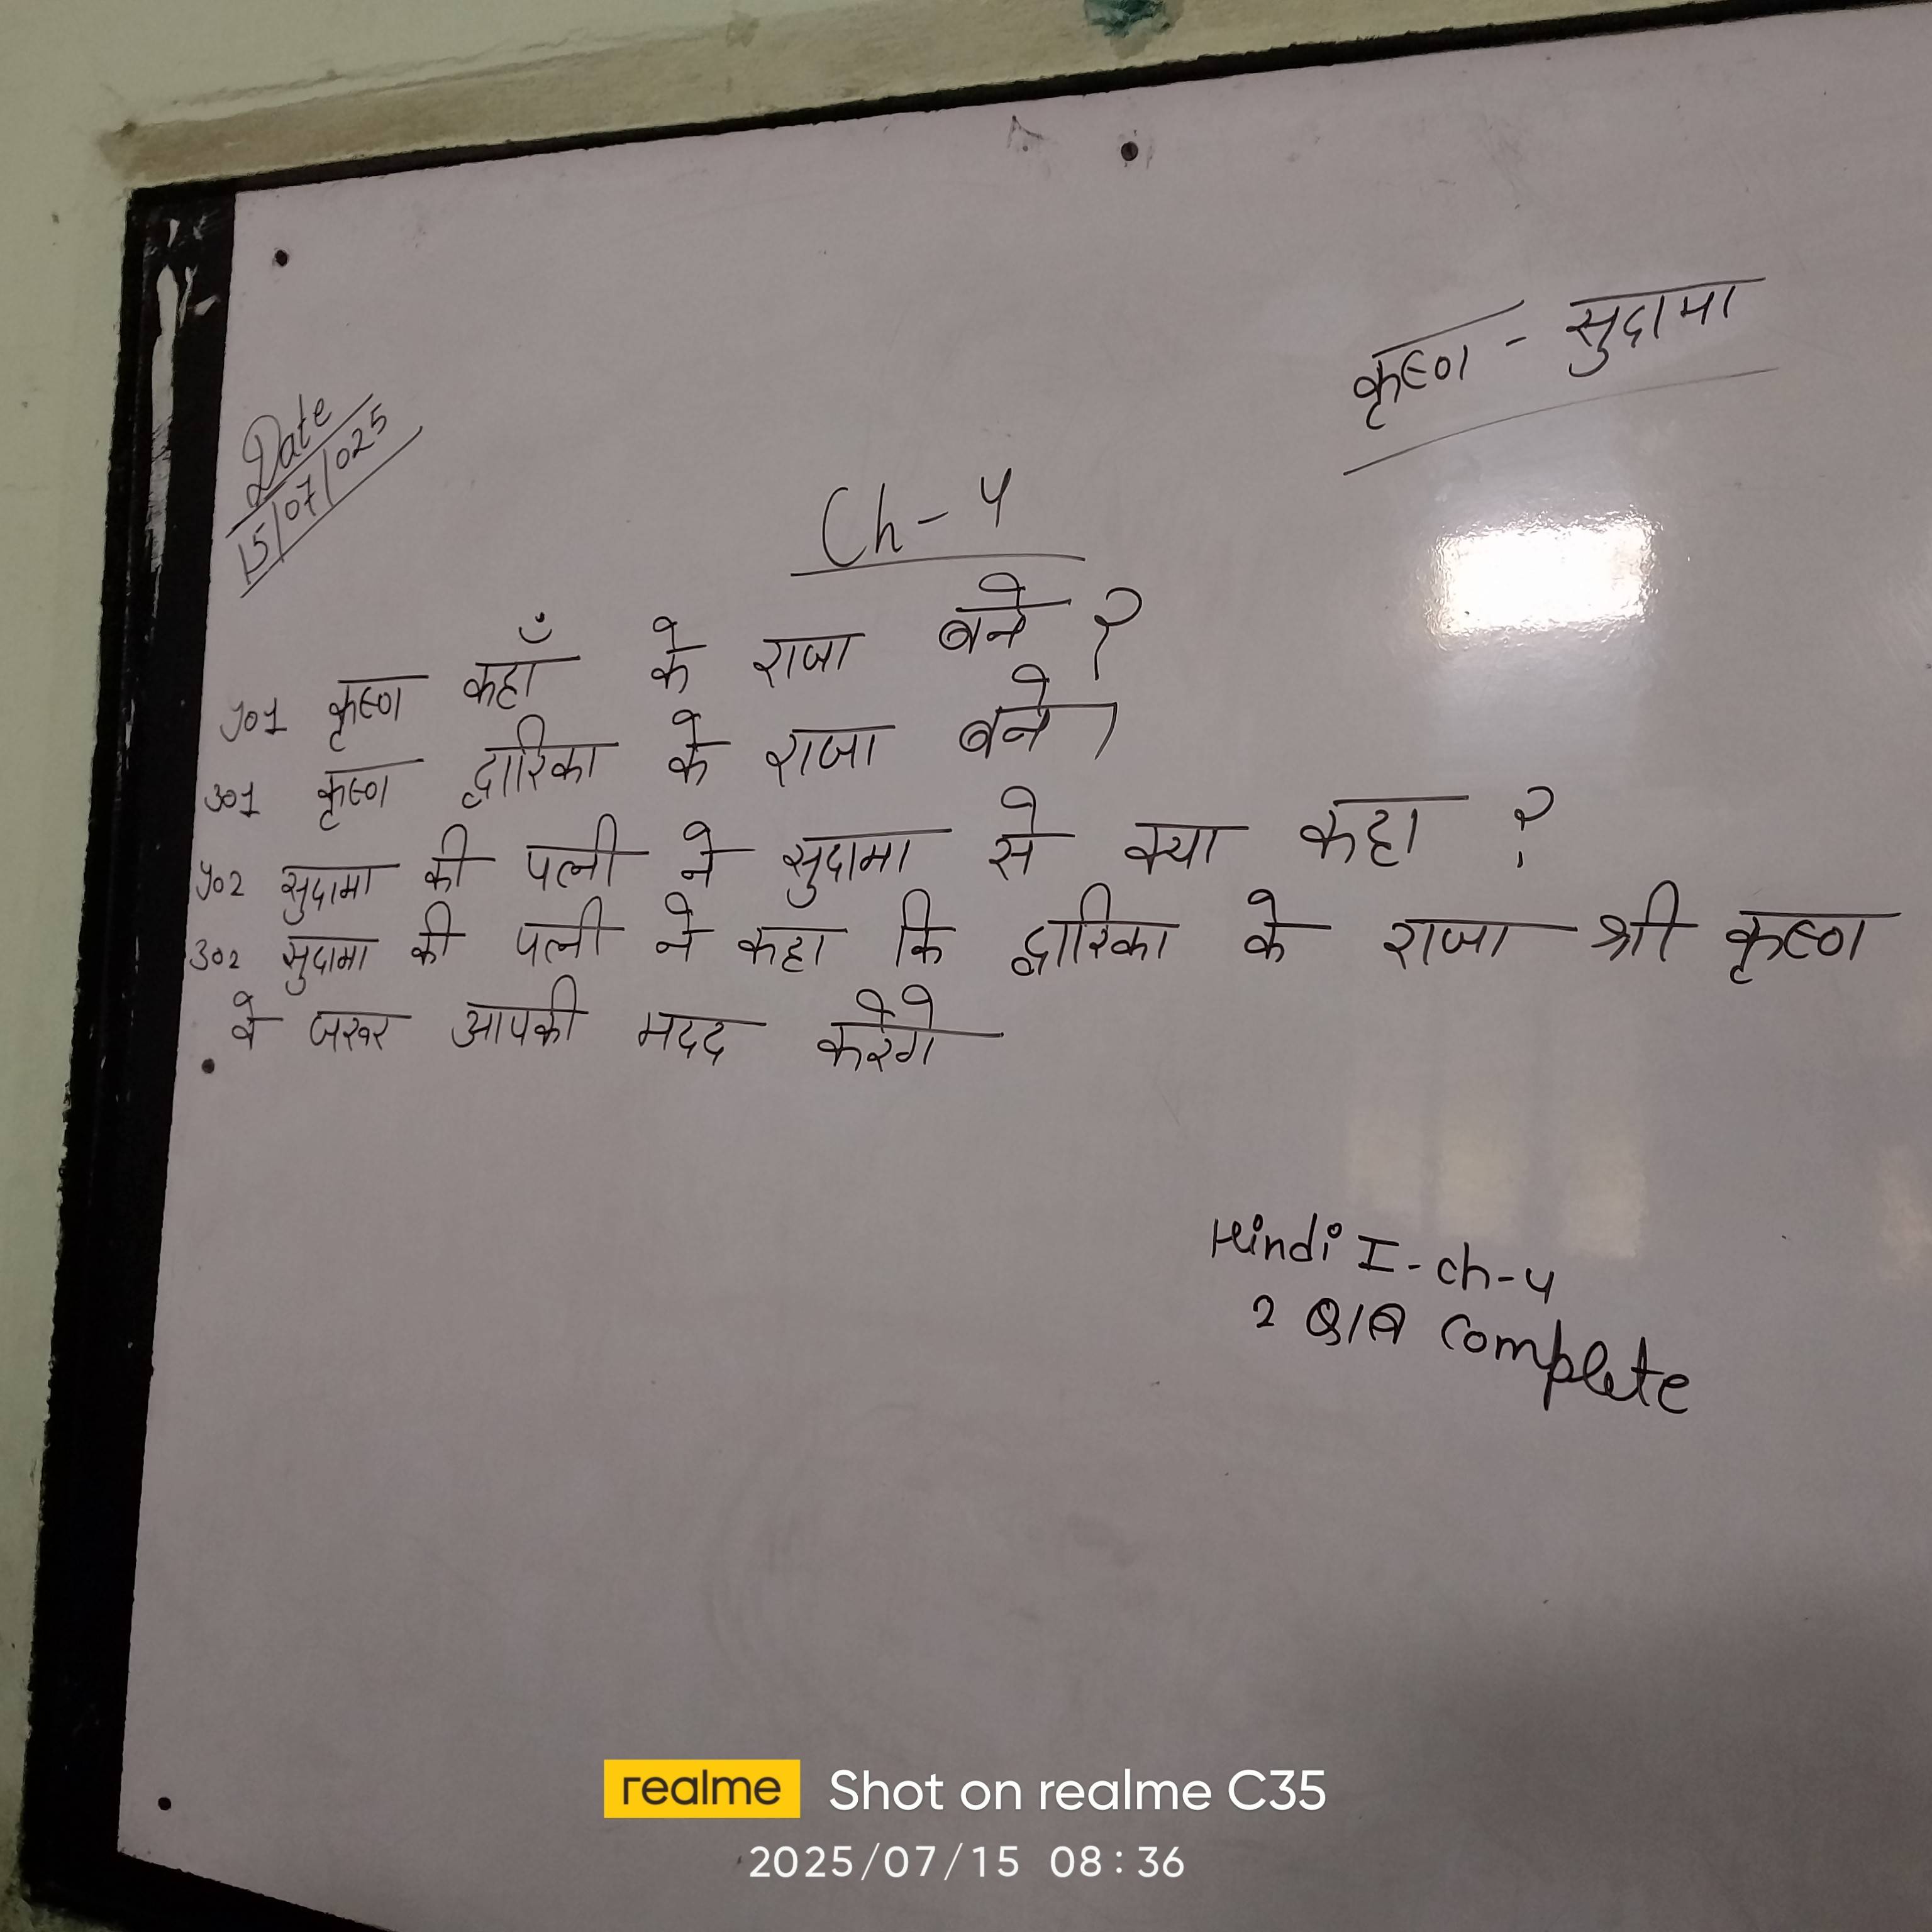 कृष्ण - सुदामा
Date
15/07/025
Ch-4
प्र०1 कृष्ण कहाँ के राजा बने ?
उ०1 कृष्ण द्वारिका के राजा बने।
प्र०2 सुदामा की पत्नी ने सुदामा से क्या कहा ?
उ०2 सुदामा की पत्नी ने कहा कि द्वारिका के राजा श्री कृष्ण
वे जरूर आपकी मदद करेगे
Hindi I-ch-4
2 Q/A Complete
realme Shot on realme C35
2025/07/15 08:36